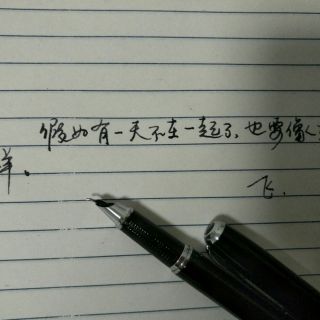 假如有一天不在一起了、也要像人
样、
飞.